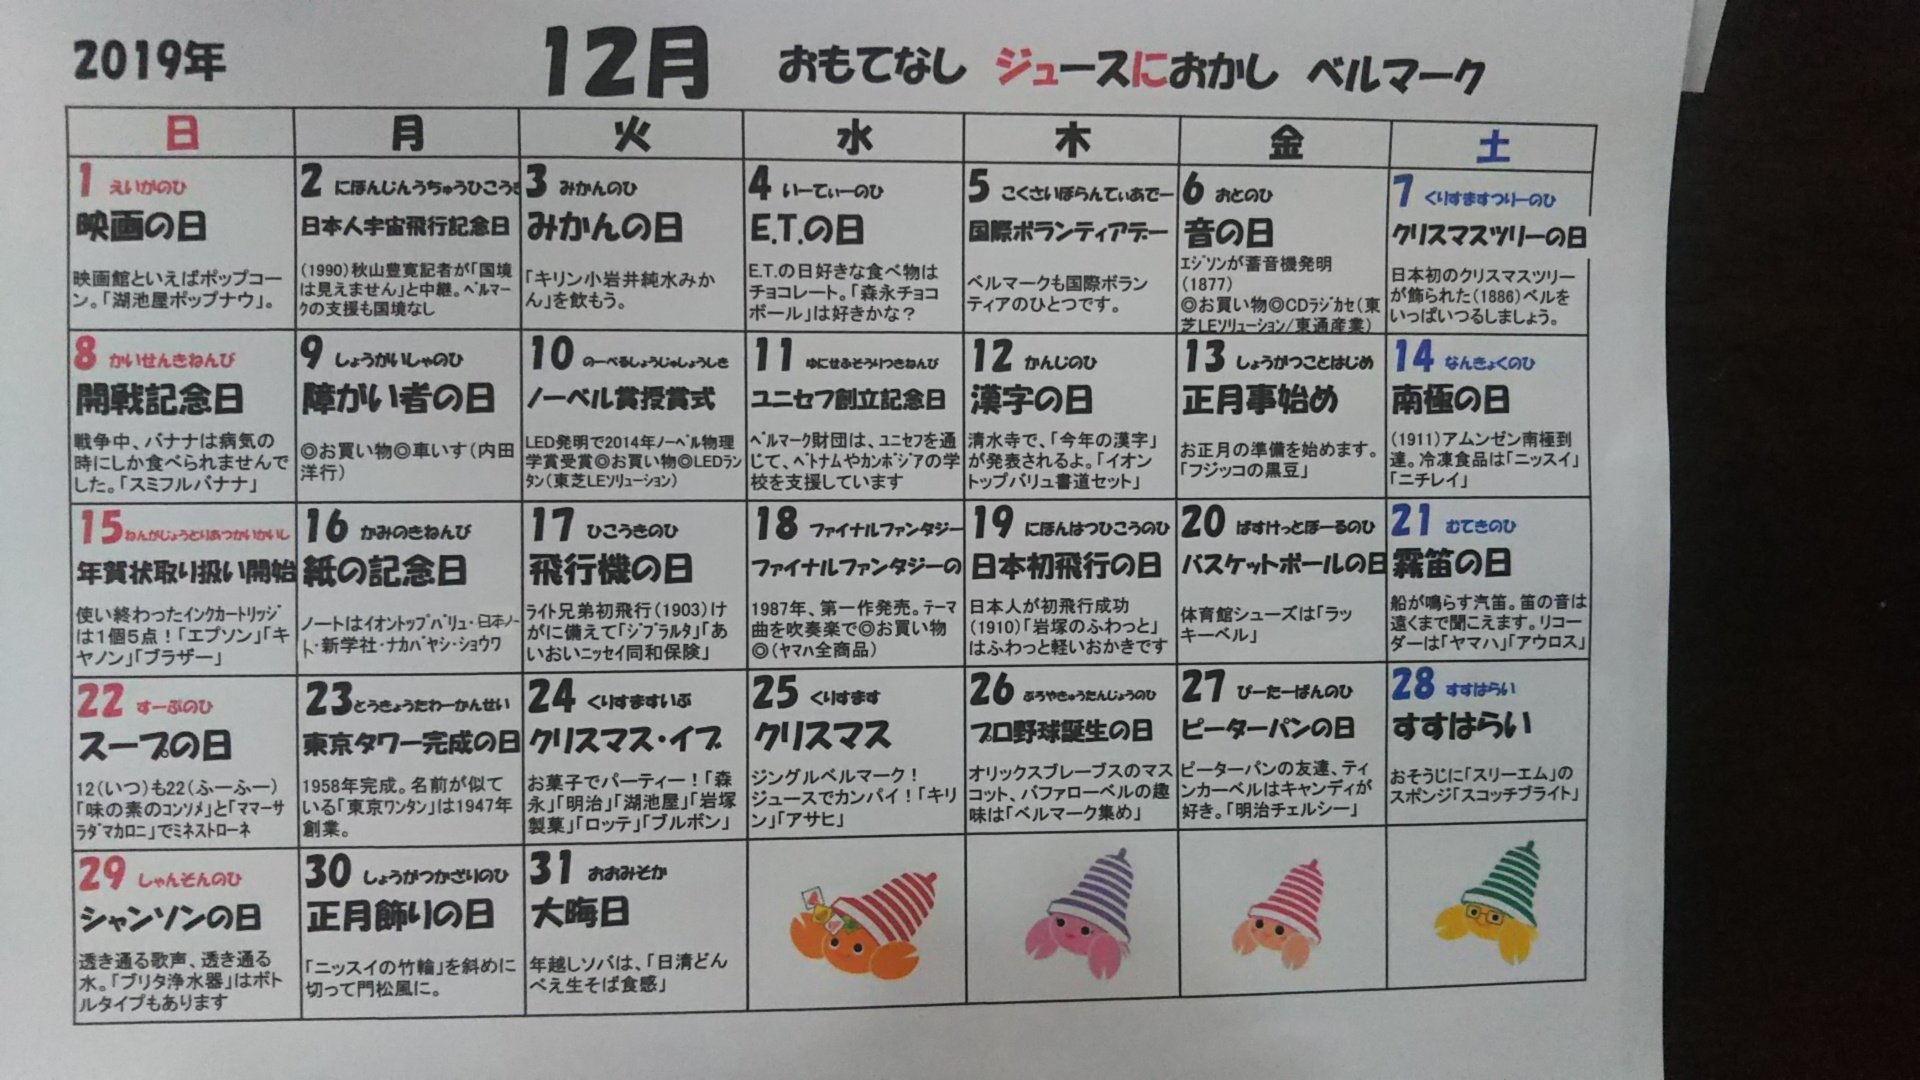 2019年
12月
おもてなし ジュースにおかし ベルマーク
日 月 火 水 木 金 土
1 えいがのひ
映画の日
映画館といえばポップコー
ン。「湖池屋ポップナウ」。
2 にほんじんうちゅうひこうき
日本人宇宙飛行記念日
(1990)秋山豊寛記者が「国境
は見えません」と中継。ベルマー
クの支援も国境なし
3 みかんのひ
みかんの日
「キリン小岩井純水みか
ん」を飲もう。
4 いーてぃーのひ
E.T.の日
E.T.の日好きな食べ物は
チョコレート。「森永チョコ
ボール」は好きかな？
5 こくさいぼらんてぃあでー
国際ボランティアデー
ベルマークも国際ボラン
ティアのひとつです。
6 おとのひ
音の日
エジソンが蓄音機発明
(1877)
◎お買い物◎CDラジカセ(東
芝LEソリューション/東通産業)
7 くりすますつりーのひ
クリスマスツリーの日
日本初のクリスマスツリー
が飾られた(1886)ベルを
いっぱいつるしましょう。
8 かいせんきねんび
開戦記念日
戦争中、バナナは病気の
時にしか食べられませんで
した。「スミフルバナナ」
9 しょうがいしゃのひ
障がい者の日
◎お買い物◎車いす(内田
洋行)
10 のーべるしょうじゅしょうしき
ノーベル賞授賞式
LED発明で2014年ノーベル物理
学賞受賞◎お買い物◎LEDラン
タン(東芝LEソリューション)
11 ゆにせふそうりつきねんび
ユニセフ創立記念日
ベルマーク財団は、ユニセフを通
じて、ベトナムやカンボジアの学
校を支援しています
12 かんじのひ
漢字の日
清水寺で、「今年の漢字」
が発表されるよ。「イオン
トップバリュ書道セット」
13 しょうがつことはじめ
正月事始め
お正月の準備を始めます。
「フジッコの黒豆」
14 なんきょくのひ
南極の日
(1911)アムンゼン南極到
達。冷凍食品は「ニッスイ」
「ニチレイ」
15 ねんがじょうとりあつかいかいし
年賀状取り扱い開始
使い終わったインクカートリッジ
は1個5点！「エプソン」「キ
ヤノン」「ブラザー」
16 かみのきねんび
紙の記念日
ノートはイオントップバリュ・日本ノー
ト・新学社・ナカバヤシ・ショウワ
17 ひこうきのひ
飛行機の日
ライト兄弟初飛行(1903)け
がに備えて「ジブラルタ」「あ
いおいニッセイ同和保険」
18 ファイナルファンタジー
ファイナルファンタジーの
1987年、第一作発売。テーマ
曲を吹奏楽で◎お買い物
◎(ヤマハ全商品)
19 にほんはつひこうのひ
日本初飛行の日
日本人が初飛行成功
(1910)「岩塚のふわっと」
はふわっと軽いおかきです
20 ばすけっとぼーるのひ
バスケットボールの日
体育館シューズは「ラッ
キーベル」
21 むてきのひ
霧笛の日
船が鳴らす汽笛。笛の音は
遠くまで聞こえます。リコー
ダーは「ヤマハ」「アウロス」
22 すーぷのひ
スープの日
12(いつ)も22(ふーふー)
「味の素のコンソメ」と「ママーサ
ラダマカロニ」でミネストローネ
23 とうきょうたわーかんせい
東京タワー完成の日
1958年完成。名前が似て
いる「東京ワンタン」は1947年
創業。
24 くりすますいぶ
クリスマス・イブ
お菓子でパーティー！「森
永」「明治」「湖池屋」「岩塚
製菓」「ロッテ」「ブルボン」
25 くりすます
クリスマス
ジングルベルマーク！
ジュースでカンパイ！「キリ
ン」「アサヒ」
26 ぷろやきゅうたんじょうのひ
プロ野球誕生の日
オリックスブレーブスのマス
コット、バファローベルの趣
味は「ベルマーク集め」
27 ぴーたーぱんのひ
ピーターパンの日
ピーターパンの友達、ティ
ンカーベルはキャンディが
好き。「明治チェルシー」
28 すすはらい
すすはらい
おそうじに「スリーエム」の
スポンジ「スコッチブライト」
29 しゃんそんのひ
シャンソンの日
透き通る歌声、透き通る
水。「ブリタ浄水器」はボト
ルタイプもあります
30 しょうがつかざりのひ
正月飾りの日
「ニッスイの竹輪」を斜めに
切って門松風に。
31 おおみそか
大晦日
年越しソバは、「日清どん
べえ生そば食感」